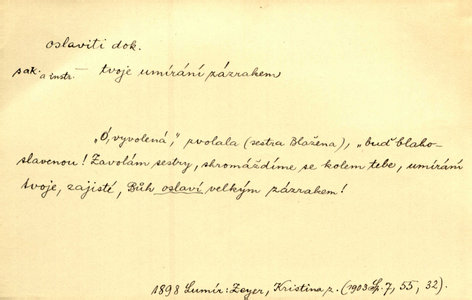 oslaviti dok.
sak. a instr. — tvoje umírání zázrakem
„Ó, vyvolená,“ zvolala (sestra Blažena), „buď blaho-
slavenou! Zavolám sestry, shromáždíme se kolem tebe, umírání
tvoje, zajisté, Bůh oslaví velkým zázrakem!
1898 Lumír: Zeyer, Kristina z. (1903 Sp. 7, 55, 32).